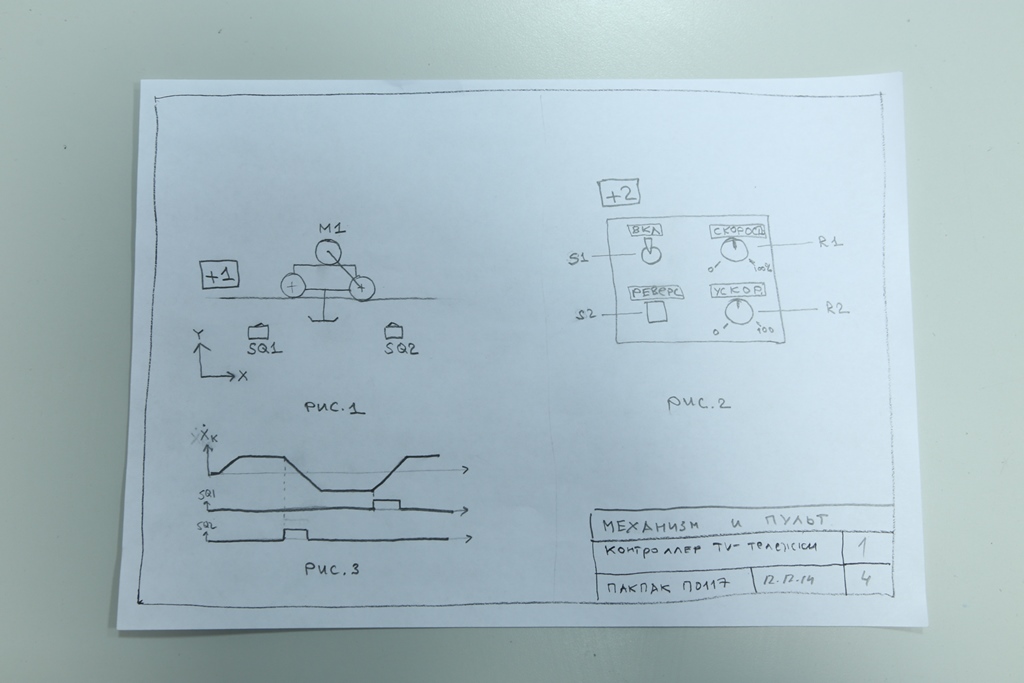 M1
+1
SQ1
SQ2
Y
X
РИС.1
+2
ВКЛ
СКОРОСТЬ
S1
R1
0
100%
РЕВЕРС
УСКОР
S2
R2
0
100
РИС.2
Ẋк
SQ1
SQ2
РИС.3
МЕХАНИЗМ И ПУЛЬТ
КОНТРОЛЛЕР TV-ТЕЛЕЖКИ
1
ПАКПАК П0117
12.12.14
4